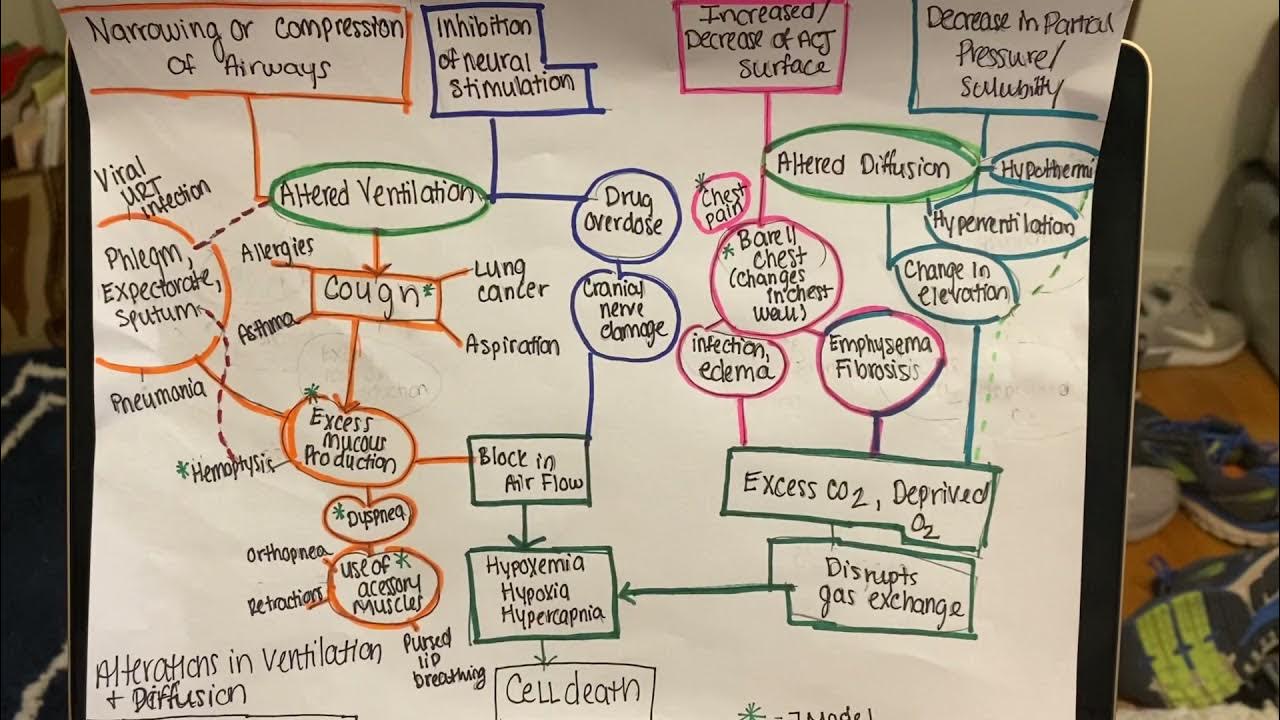 Narrowing or Compression
of Airways
Inhibition
of neural
Stimulation
Increased/
Decrease of ACJ
surface
Decrease in Partial
Pressure/
Solubility
Viral
URT
infection
Altered Ventilation
Drug
overdose
Altered Diffusion
Hypothermi
*Chest
pain
Hyperventilation
Phlegm,
Expectorate,
Sputum
Allergies
Cough*
Lung
cancer
Asthma
Aspiration
Cranial
nerve
damage
*Barell
chest
(changes
in chest
wall)
Change in
elevation
infection,
edema
Emphysema
Fibrosis
Pneumonia
*Excess
Mucous
Production
*Hemoptysis
Block in
Air Flow
Excess CO2, Deprived
O2
*Dyspnea
Orthopnea
Retractions
use of *
acessory
Muscles
Pursed
lip
breathing
Hypoxemia
Hypoxia
Hypercapnia
Disrupts
gas exchange
Cell death
Alterations in Ventilation
+ Diffusion